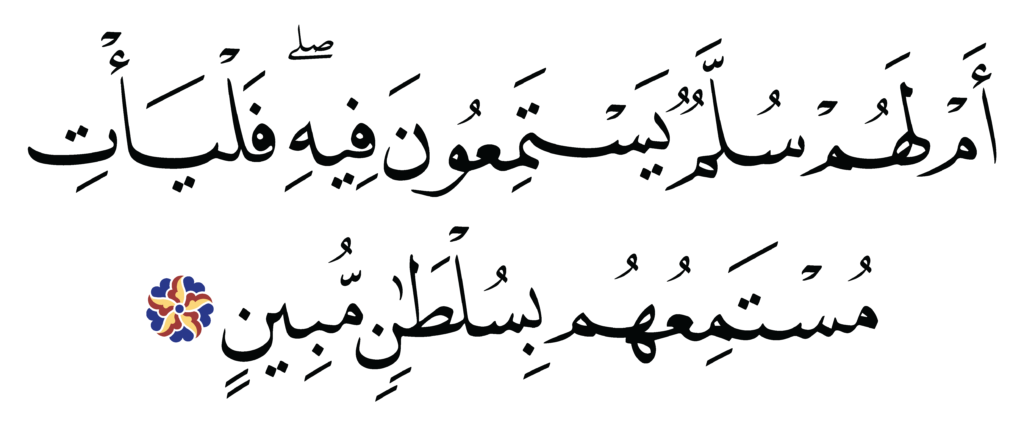 أَمْ لَهُمْ سُلَّمٌ يَسْتَمِعُونَ فِيهِ ۖ فَلْيَأْتِ
مُسْتَمِعُهُم بِسُلْطَٰنٍ مُّبِينٍ